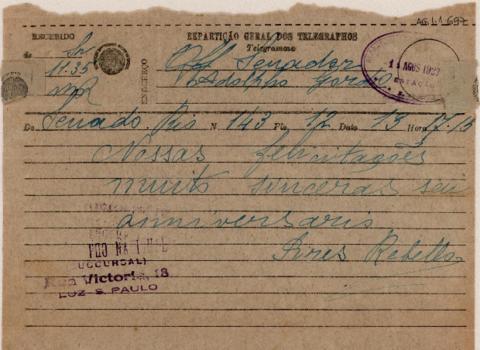 AG.L1.697
RECEBIDO
REPARTIÇÃO GERAL DOS TELEGRAPHOS
Telegramma
de
11.35
ENDEREÇO
Senador
Adolpho Gordo
AGOS 192
ESTAÇÃO
De Senado. Rio N 143 Pls 12 Data 13 Hora 17.15
Nossas felicitações
muito sinceras seu
anniversario
Pires Rebello
SUCCURSAL
Rua Victoria, 18
LUZ - S. PAULO